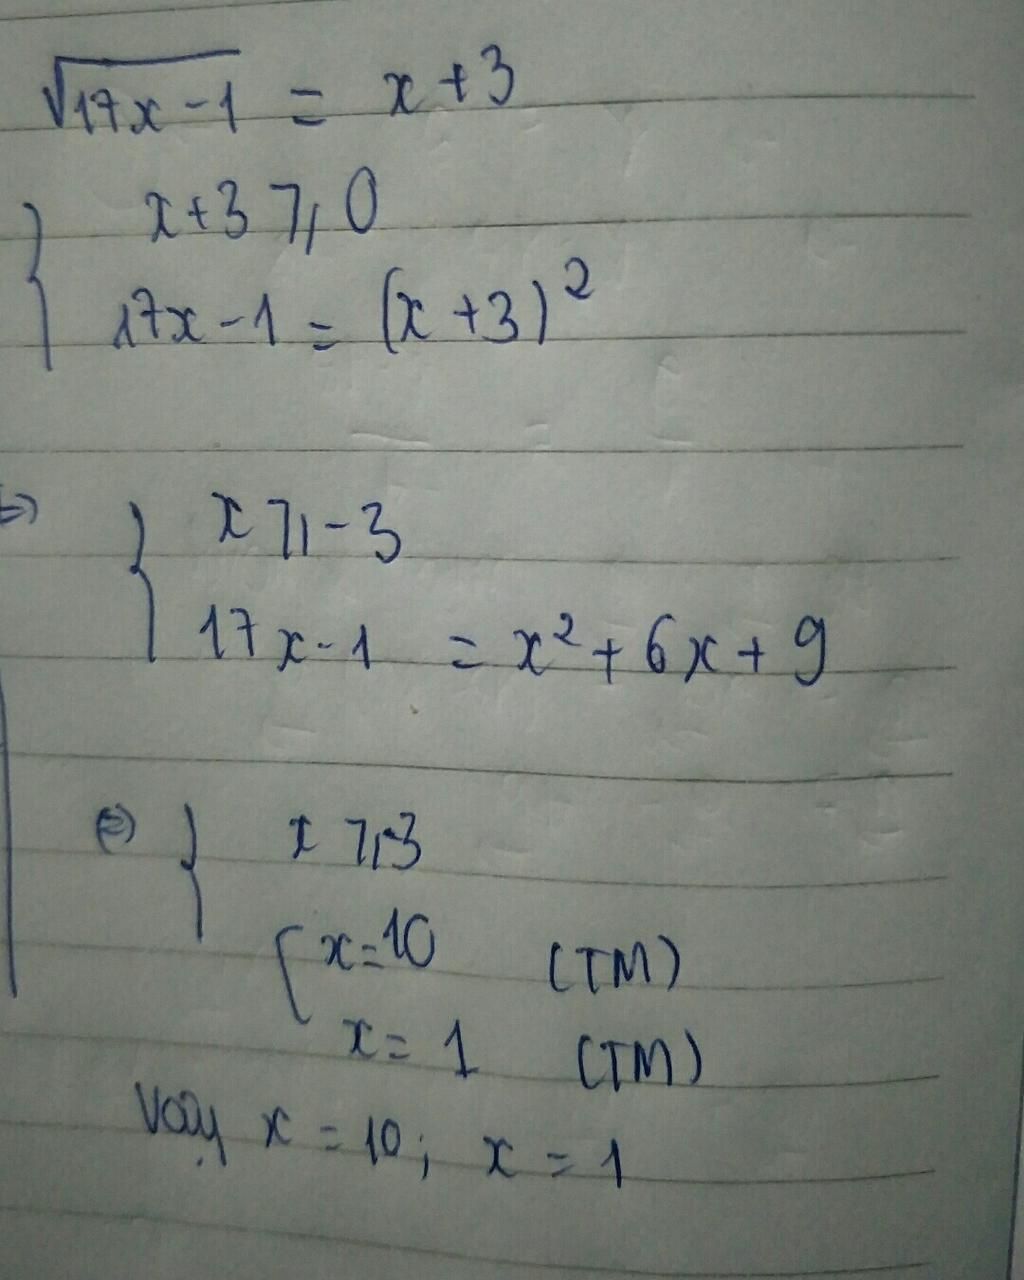 √17x-1 = x+3
{ x+3 ⩾ 0
17x-1 = (x+3)²
⇔ { x ⩾ -3
17x-1 = x²+6x+9
⇔ { x ⩾ -3
[ x=10 (TM)
x=1 (TM)
Vậy x=10; x=1